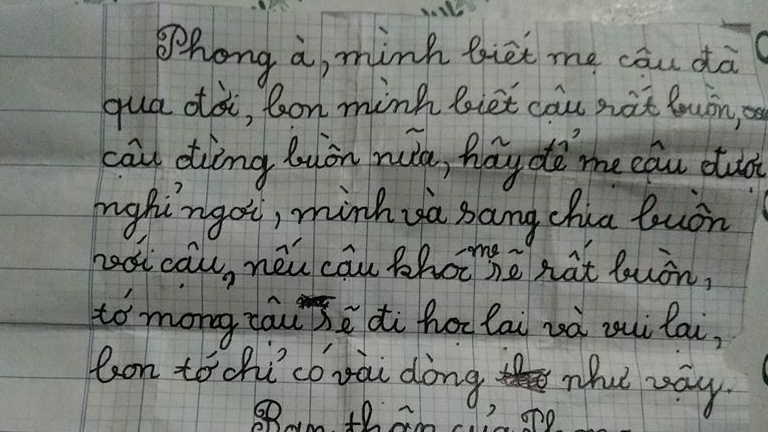 Phong à, mình biết mẹ cậu đã
qua đời, bọn mình biết cậu rất buồn,
cậu đừng buồn nữa, hãy để mẹ cậu được
nghỉ ngơi, mình và sang chia buồn
với cậu, nếu cậu khóc mẹ sẽ rất buồn,
tớ mong cậu sẽ đi học lại và vui lại,
bọn tớ chỉ có vài dòng như vậy.
Bạn thân của